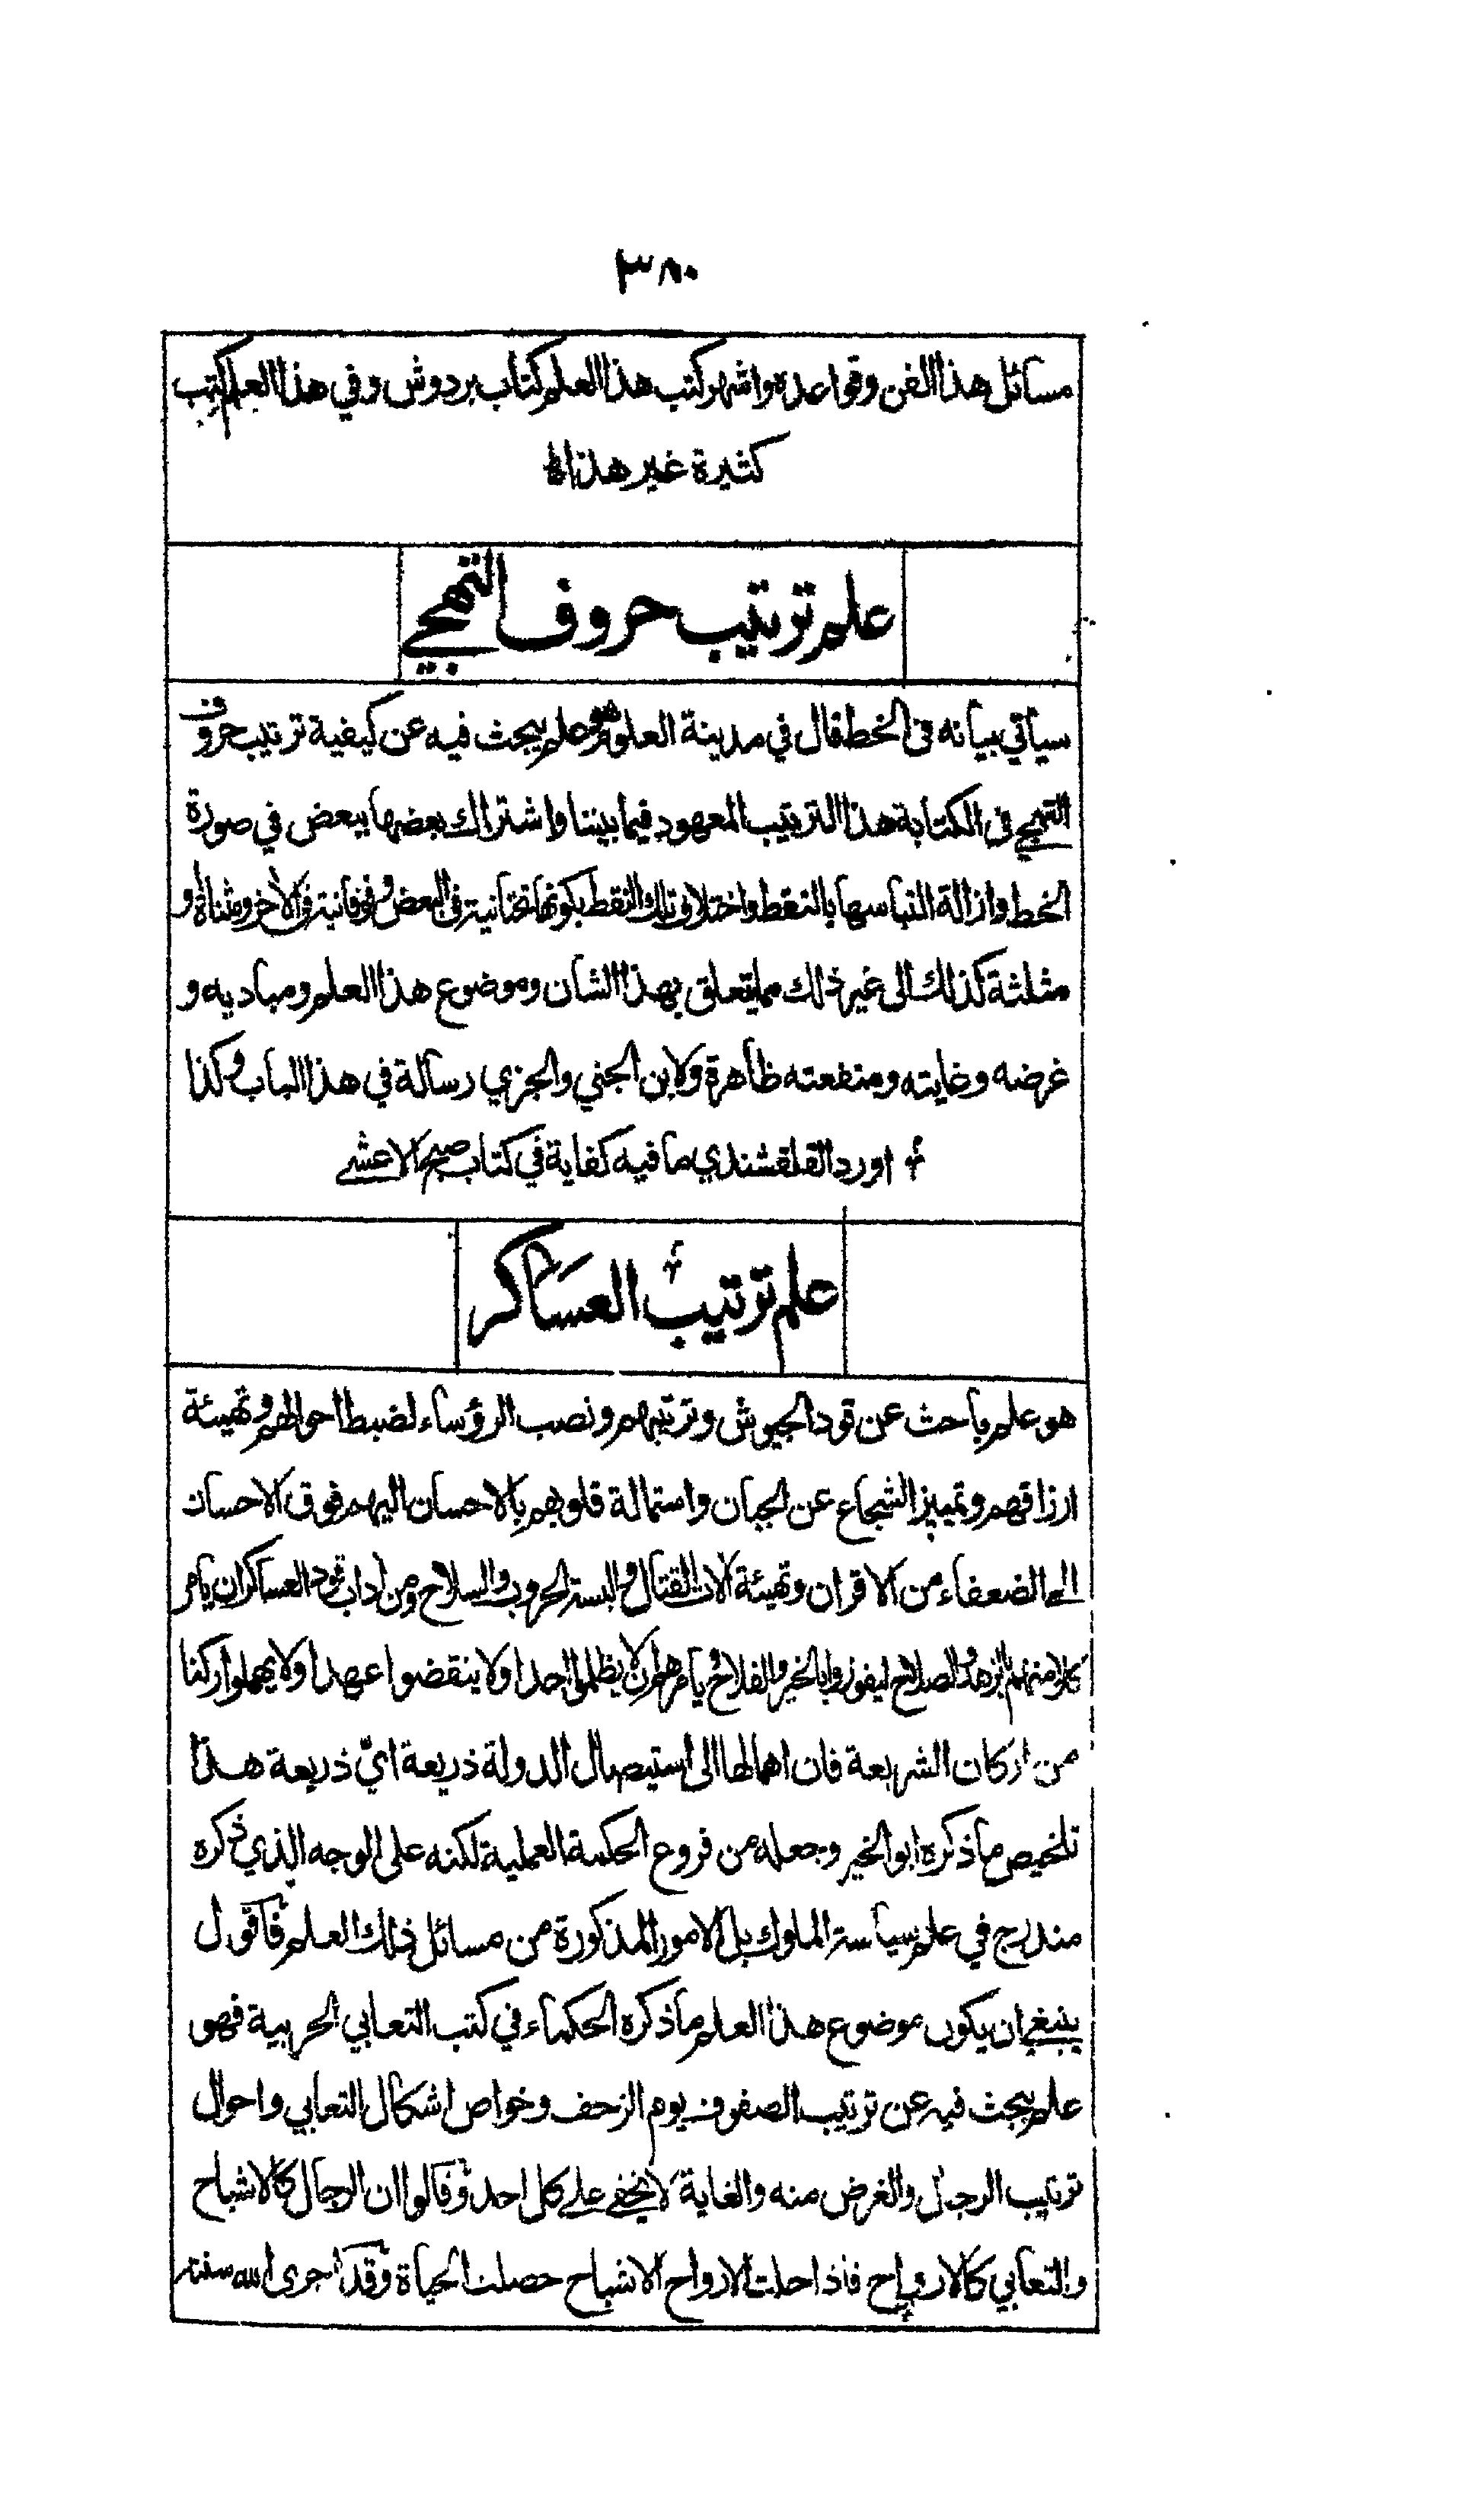 ٣٨٠
مسائل هذا الفن وقواعده واشهر كتب هذا العلم كتاب بردوش وفي هذا العلم كتب
كثيرة غير هذا اه
علم ترتيب حروف التهجي
سيأتي بيانه في الخط قال في مدينة العلوم هو علم يبحث فيه عن كيفية ترتيب حروف
التهجي في الكتابة هذا الترتيب المعهود فيما بيننا واشتراك بعضها ببعض في صورة
الخط وازالة التباسها بالنقط واختلاف تلك النقط بكونها تحتانية في البعض وفوقانية في الأخر ومثناة و
مثلثة كذلك الى غير ذلك مما يتعلق بهذا الشان وموضوع هذا العلم ومباديه و
غرضه وغايته ومنفعته ظاهرة ولابن الجني والجزري رسالة في هذا الباب وكذا
اورد القلقشندي ما فيه كفاية في كتاب صبح الاعشى
علم ترتيب العساكر
هو علم باحث عن قود الجيوش وترتيبهم ونصب الرؤساء لضبط احوالهم وتهيئة
ارزاقهم وتمييز الشجاع عن الجبان واستمالة قلوبهم بالاحسان اليهم فوق الاحسان
الى الضعفاء من الاقران وتهيئة آلات القتال والبسة الحروب والسلاح ومن اداب قود العساكر ان يامر
كلا منهم بالزهد والصلاح ليفوزوا بالخير والفلاح ويامرهم ان لا يظلموا احدا ولا ينقضوا عهدا ولا يهملوا ركنا
من اركان الشريعة فان اهمالها الى استيصال الدولة ذريعة ايّ ذريعة هذا
تلخيص ما ذكره ابو الخير وجعله من فروع الحكمة العملية لكنه على الوجه الذي ذكره
مندرج في علم سياسة الملوك بل الامور المذكورة من مسائل ذلك العلم فاقول
ينبغي ان يكون موضوع هذا العلم ما ذكره الحكماء في كتب التعابي الحربية فهو
علم يبحث فيه عن ترتيب الصفوف يوم الزحف وخواص اشكال التعابي واحوال
ترتيب الرجال والغرض منه والغاية لا تخفى على كل احد وقالوا ان الرجال كالاشباح
والتعابي كالارواح فاذا حلت الارواح الاشباح حصلت الحياة وقد اجرى الله سنته